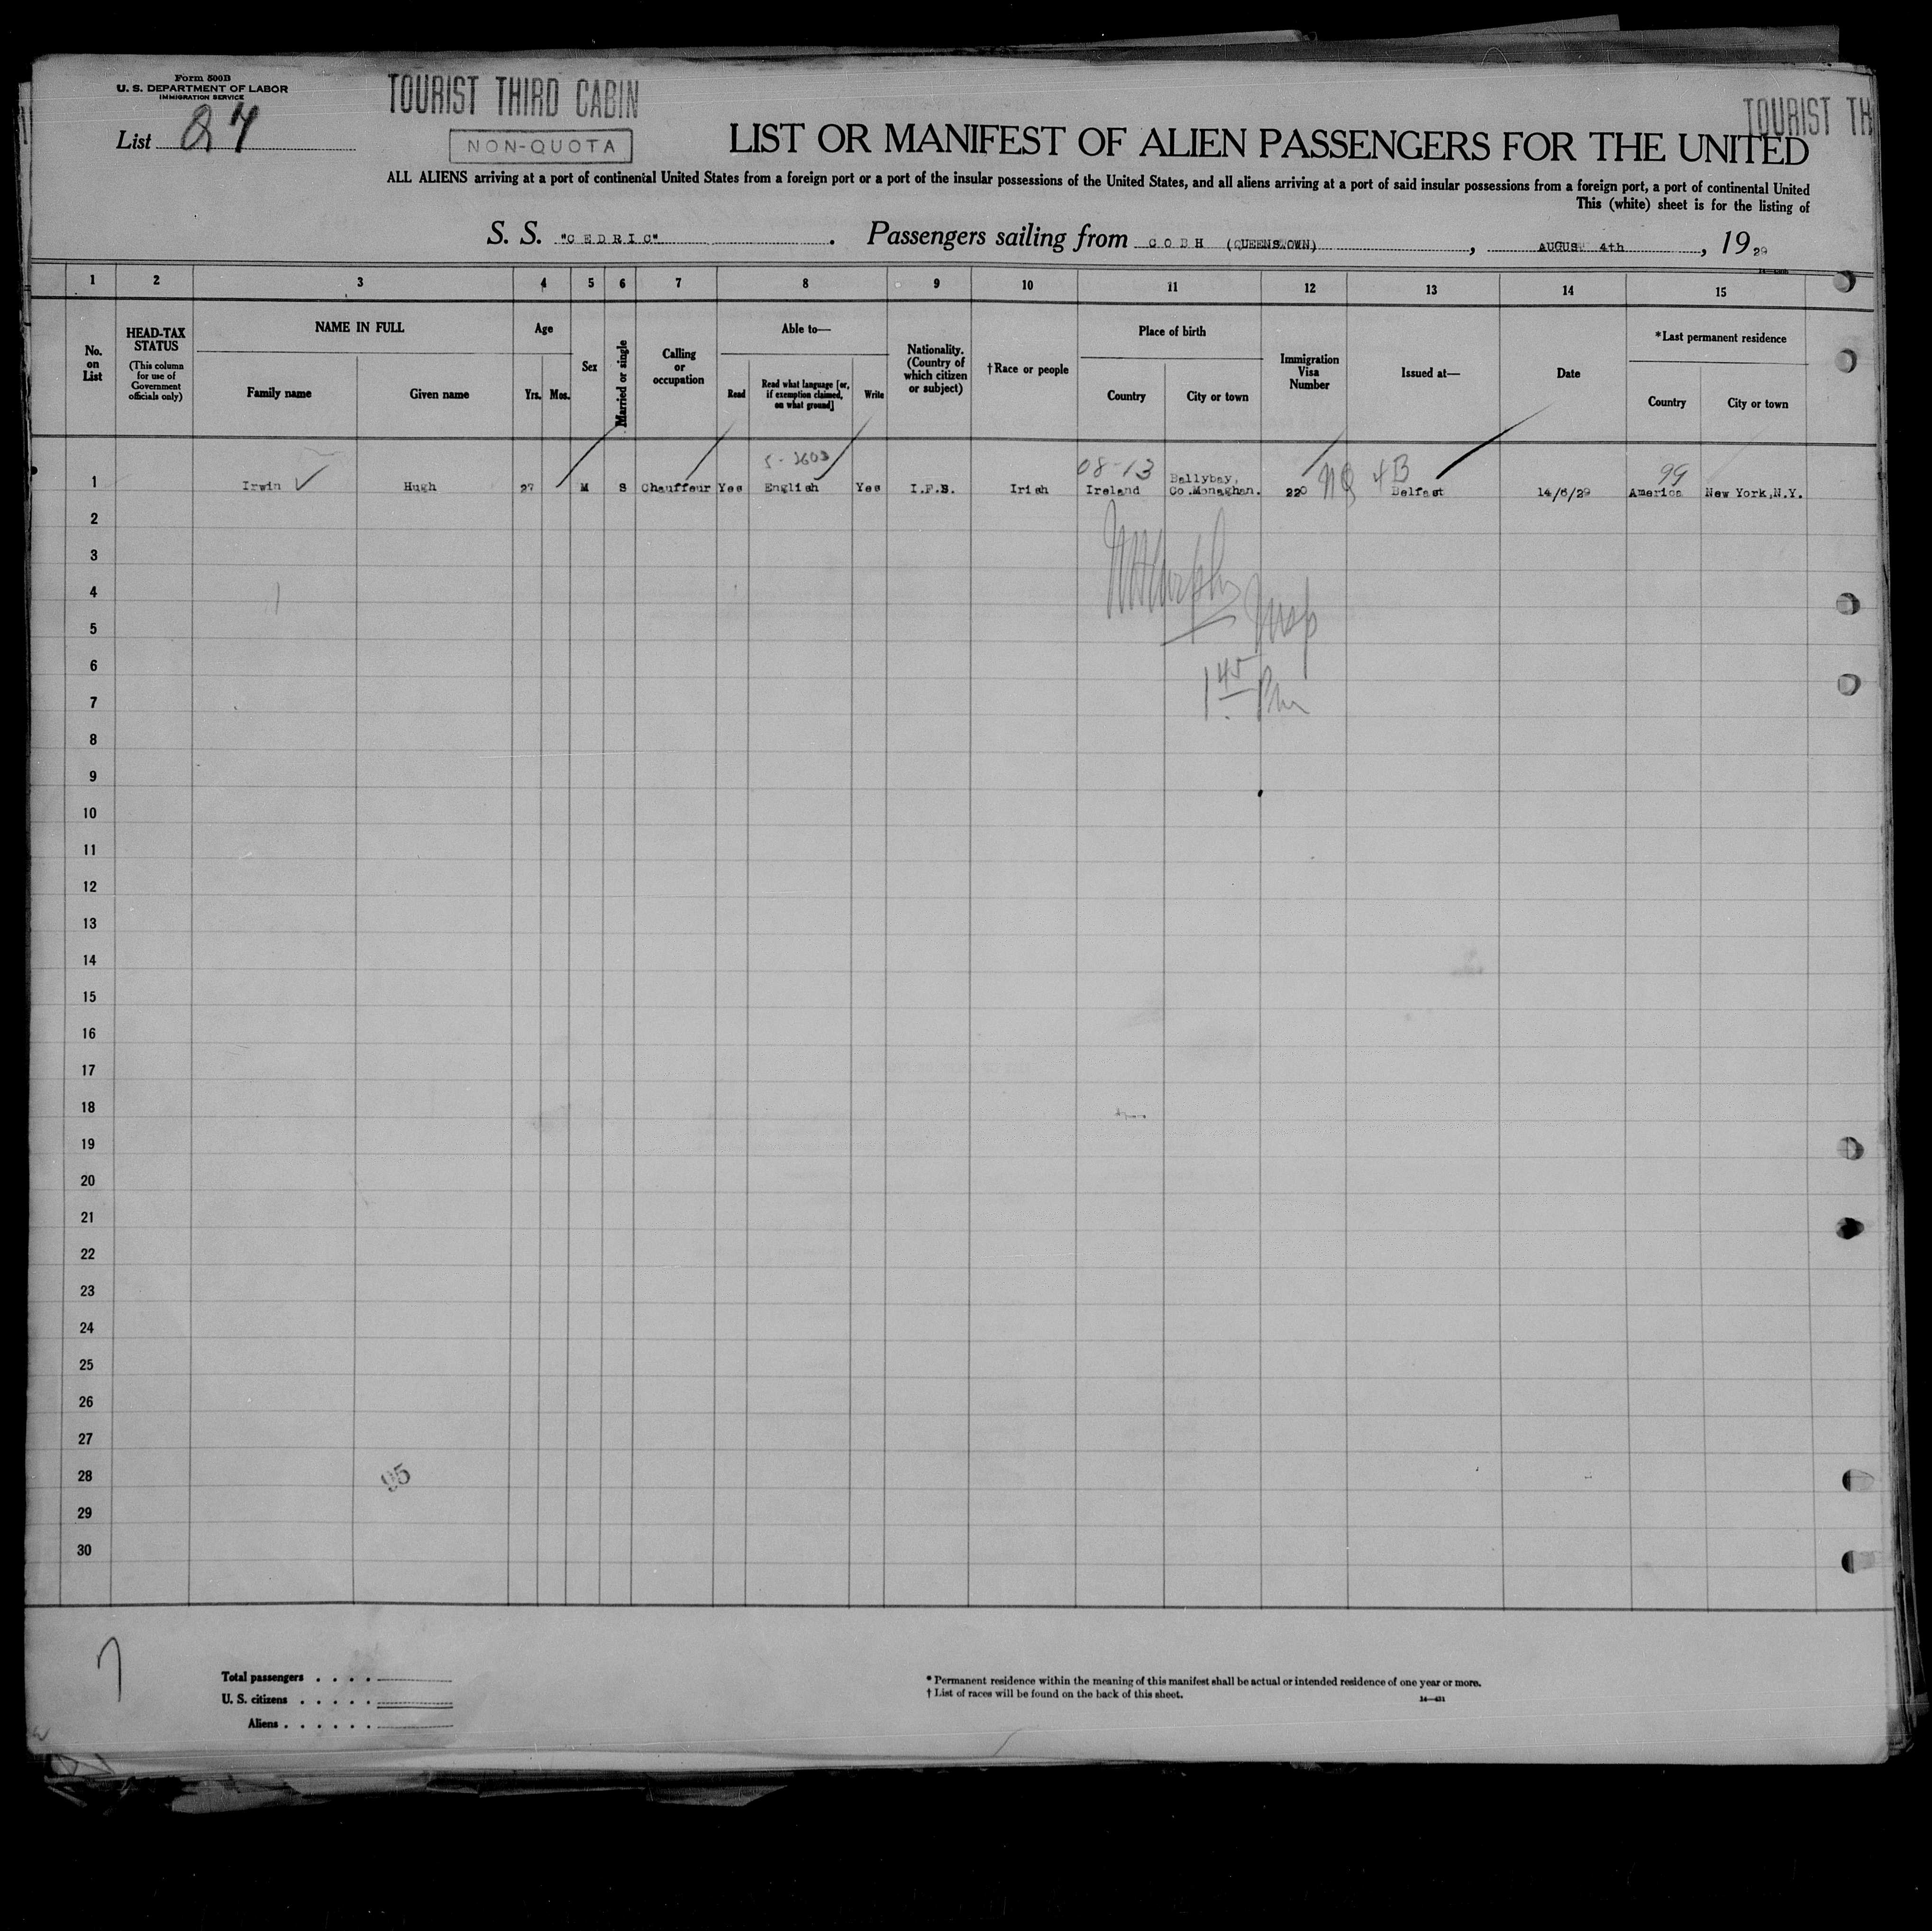 Form 500B
U. S. DEPARTMENT OF LABOR
IMMIGRATION SERVICE
TOURIST THIRD CABIN
TOURIST TH
List 27
NON-QUOTA
LIST OR MANIFEST OF ALIEN PASSENGERS FOR THE UNITED
ALL ALIENS arriving at a port of continental United States from a foreign port or a port of the insular possessions of the United States, and all aliens arriving at a port of said insular possessions from a foreign port, a port of continental United
This (white) sheet is for the listing of
S. S. "CEDRIC". Passengers sailing from COBH (QUEENSTOWN), AUGUST 4th, 1929
1 2 3 4 5 6 7 8 9 10 11 12 13 14 15
No. on List
HEAD-TAX STATUS
(This column for use of Government officials only)
NAME IN FULL
Family name
Given name
Age
Yrs.
Mos.
Sex
Married or single
Calling or occupation
Able to—
Read
Read what language [or, if exemption claimed, on what ground]
Write
Nationality. (Country of which citizen or subject)
†Race or people
Place of birth
Country
City or town
Immigration Visa Number
Issued at—
Date
*Last permanent residence
Country
City or town
08-13
99
1 Irwin Hugh 27 M S Chauffeur Yes English Yes I.F.S. Irish Ireland Ballybay, Co.Monaghan. 220 NQ 4B Belfast 14/6/29 America New York,N.Y.
2
3
4
Murphy
Insp
5
6
1 45 Pm
7
8
9
10
11
12
13
14
15
16
17
18
19
20
21
22
23
24
25
26
27
28
95
29
30
Total passengers . . . .
U. S. citizens . . . . .
Aliens . . . . . .
* Permanent residence within the meaning of this manifest shall be actual or intended residence of one year or more.
† List of races will be found on the back of this sheet.
14—431